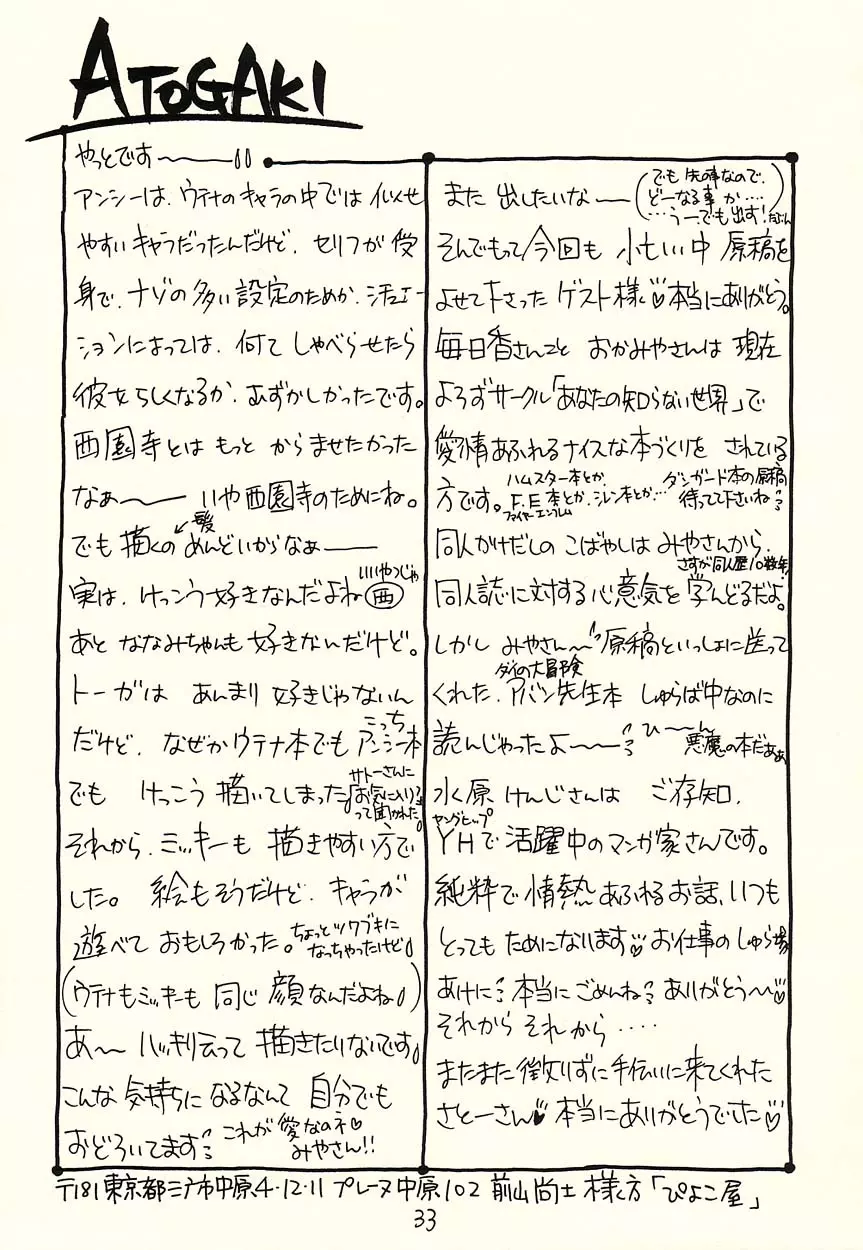 ATOGAKI
やっとです〜
アンシーは、ウテナのキャラの中では イメせ
やすいキャラだったんだけど、セリフが 受
身で、ナゾの多い設定のためか、シチュエー
ションによっては、何て しゃべらせたら
彼女らしくなるか、むずかしかったです。
西園寺とは もっと からませたかった
なぁ〜 いや西園寺のためにね。
でも描くの めんどいからなぁー
髪
実は、けっこう好きなんだよね 西
いいやつじゃ
あと ななみちゃんも 好きなんだけど。
トーガは あんまり 好きじゃないん
だけど、なぜかウテナ本でも アンシー本
こっち
でも けっこう 描いてしまった。
サトーさんに
お気に入り?
って聞かれた。
それから、ミッキーも 描きやすい方で
した。 絵もそうだけど、キャラが
遊べて おもしろかった。
ちょっとツワブキに
なっちゃったけど
(ウテナもミッキーも 同じ 顔なんだよね)
あ〜 ハッキリ云って 描きたりないです
こんな 気持ちに なるなんて 自分でも
おどろいてます
これが 愛なのネ
みやさん!!
また 出したいな〜
(でも 先の事なので、
どーなる事 か‥‥
‥‥うーでも出す!たぶん)
そんでもって今回も 忙しい中 原稿を
よせて下さった ゲスト様♡本当にありがとう。
毎日香さんこと おかみやさんは 現在
よろずサークル「あなたの知らない世界」で
愛情あふれるナイスな本づくりを されている
方です。
ハムスター本とか、
F.E本とか、シレン本とか‥‥
ファイヤーエンブレム
ダンガード本の原稿
待ってて下さいね
同人かけだしの こばやしは みやさんから、
さすが同人屋10数年!
同人誌に対する心意気を 学んどるだよ。
しかし みやさん〜 原稿といっしょに送って
くれた、アバン先生本 しゅらば中なのに
ダイの大冒険
読んじゃったよ〜
ひ〜〜ん
悪魔の本だぁぁ
水原 けんじさんは ご存知、
YHで活躍中のマンガ家さんです。
ヤングヒップ
純粋で 情熱 あふれる お話、いつも
とっても ためになります♡ お仕事の しゅら場
あけに 本当に ごめんね ありがとう〜♡
それから それから‥‥
またまた 懲りずに 手伝いに来てくれた
さとーさん♥ 本当にありがとうでした♡
〒181 東京都三鷹市中原4・12・11 プレーヌ中原102 前山尚士 様方「ぴよこ屋」
33